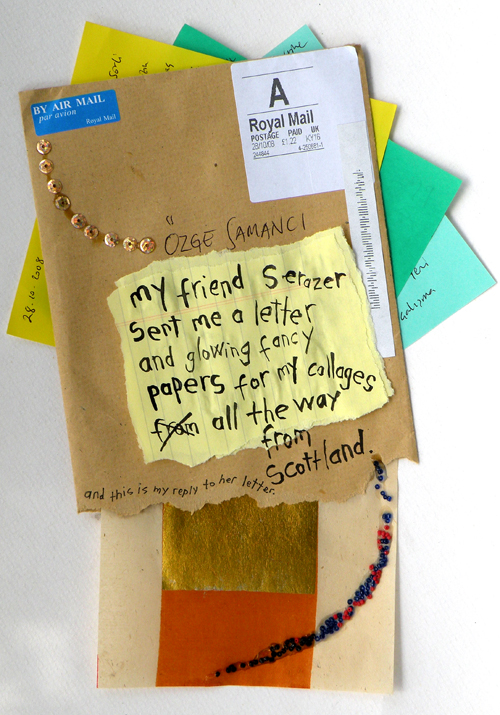 BY AIR MAIL
par avion
Royal Mail
A
Royal Mail
POSTAGE PAID UK
28/10/08 £1.22 KY16
ÖZGE SAMANCI
my friend Serazer
Sent me a letter
and glowing fancy
papers for my collages
from all the way
from
Scottland.
and this is my reply to her letter.
28.10.2008